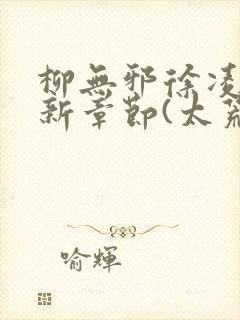 柳無邪徐凌
新章節(太荒
喻輝